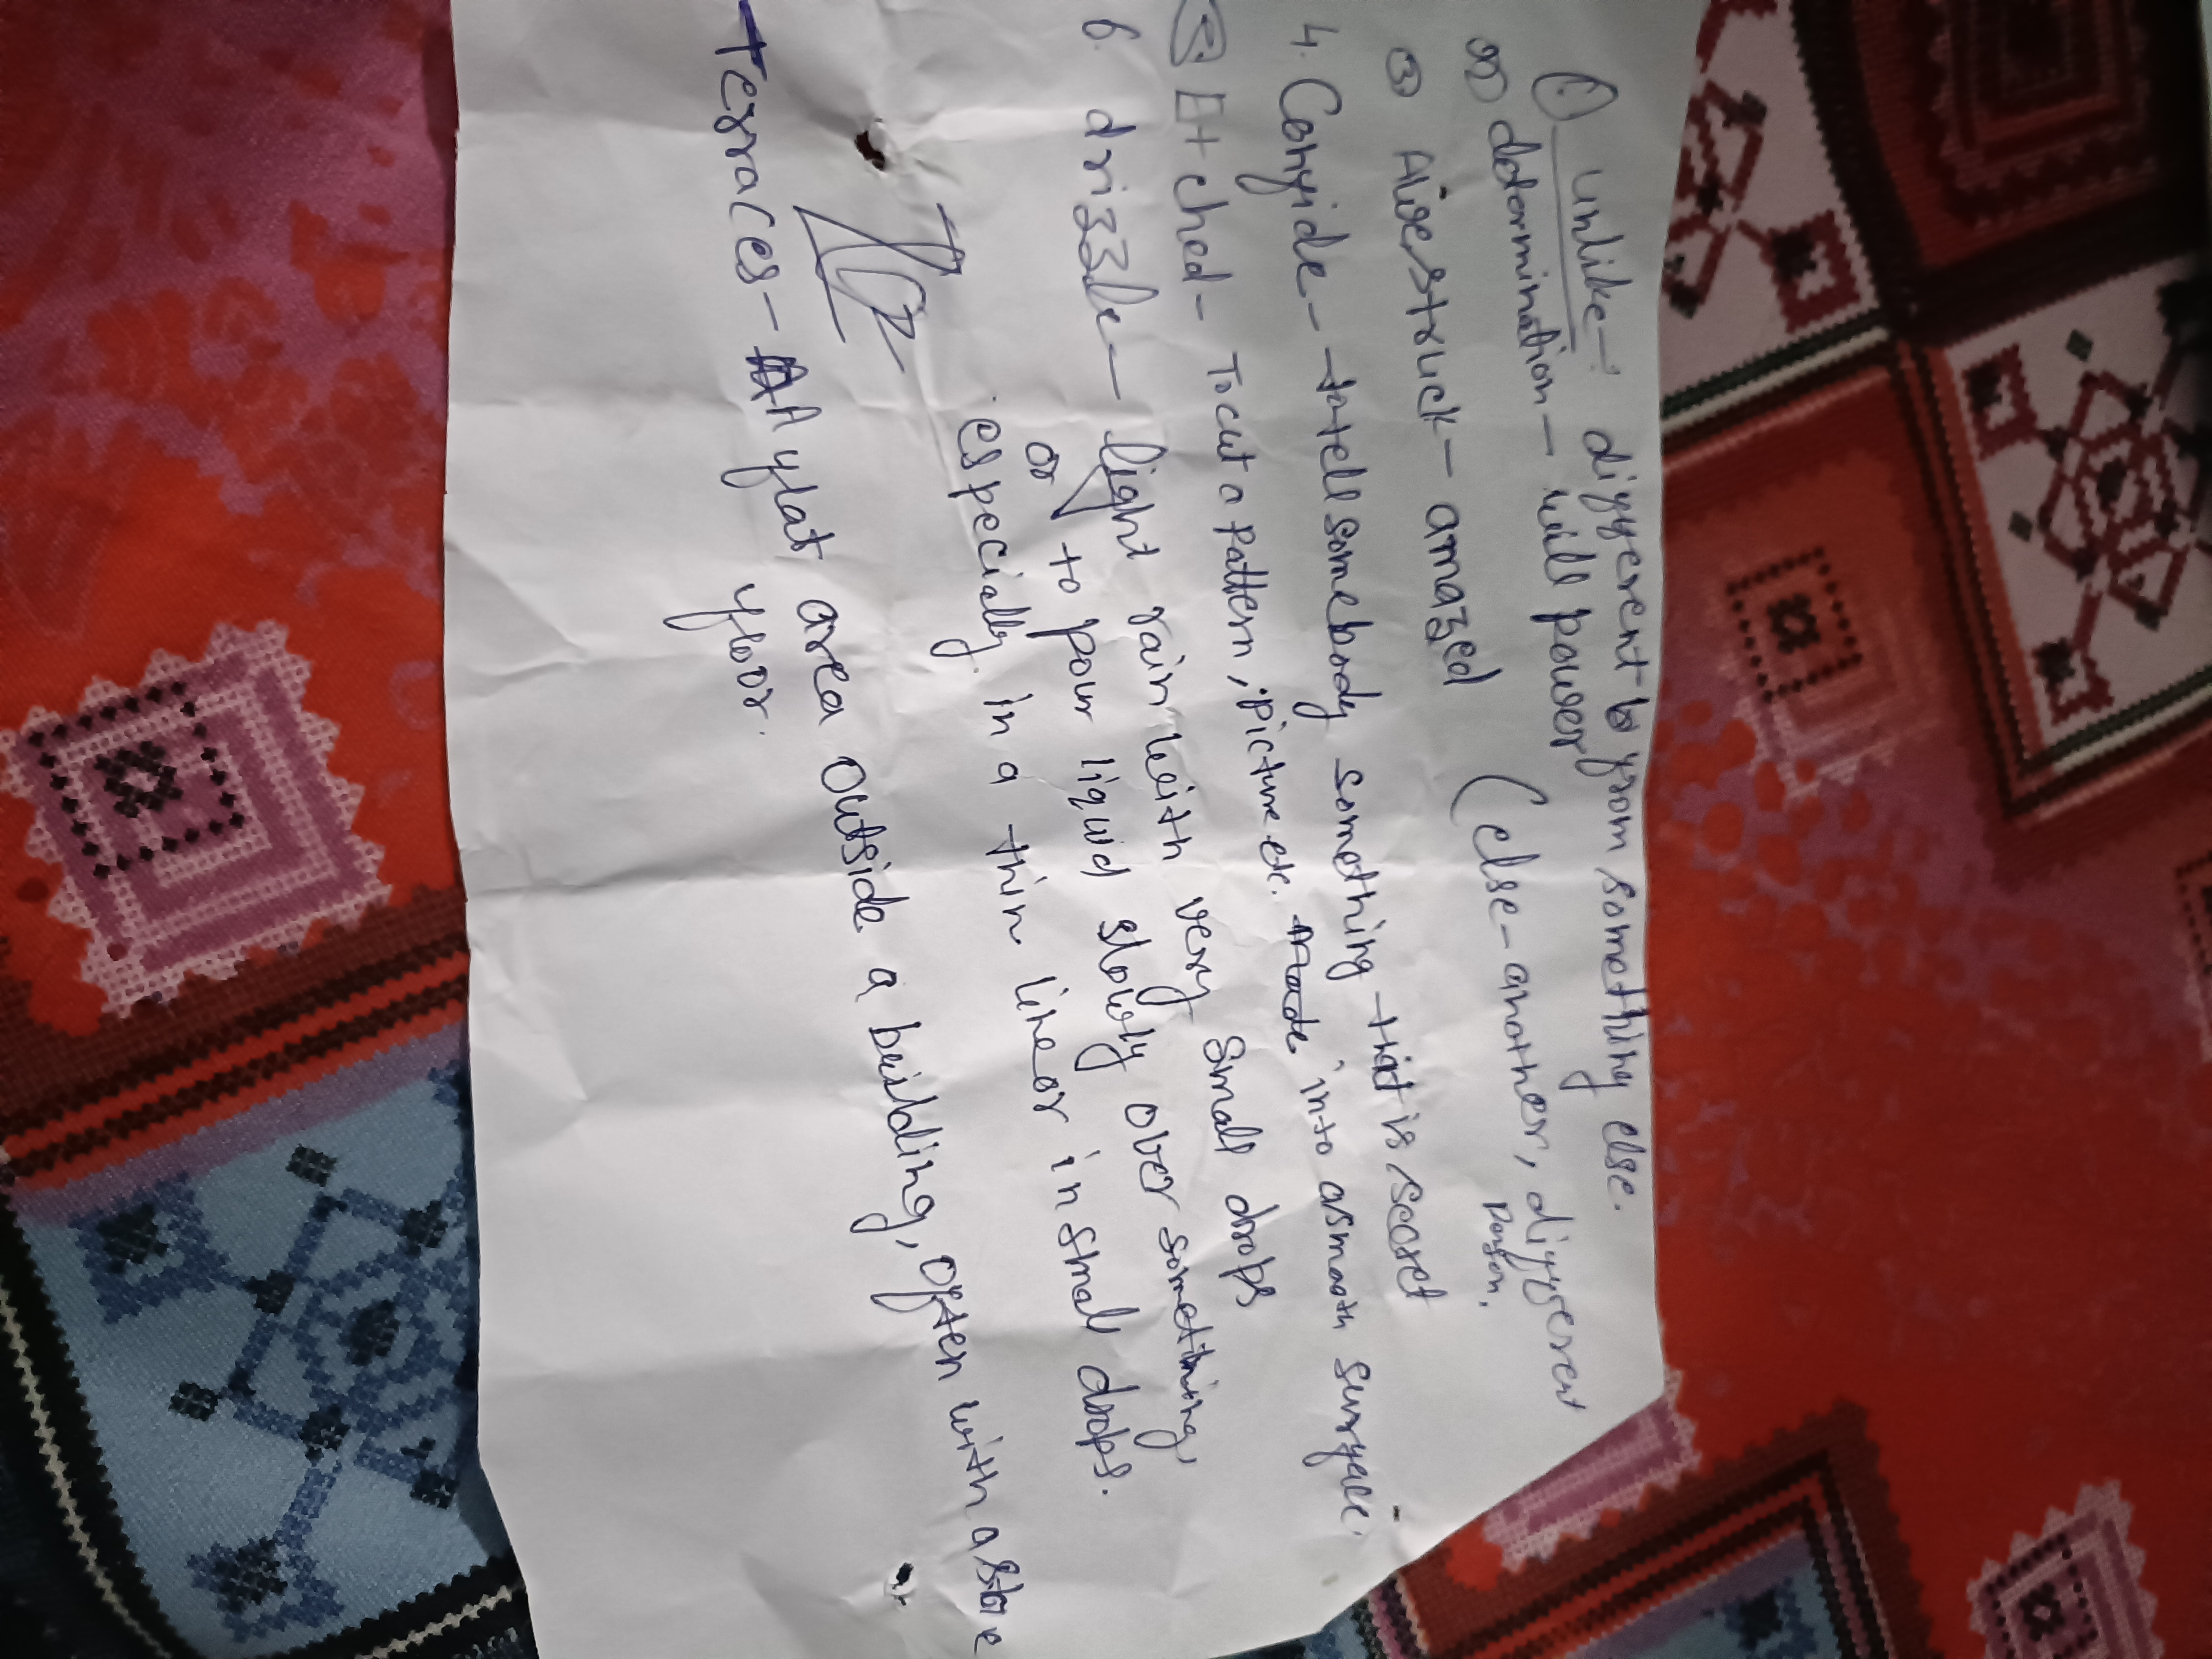 ① Unlike- different to from something else.
② determination- will power
③ Awestruck- amazed (else-another, different
person.
4. Confide- to tell somebody something that is secret
⑤ Etched- To cut a pattern, picture etc. into a smooth surface.
6. drizzle- light rain with very small drops
or to pour liquid slowly over something,
especially in a thin line or in small drops.
Terraces- A flat area outside a building, often with a stone
floor.